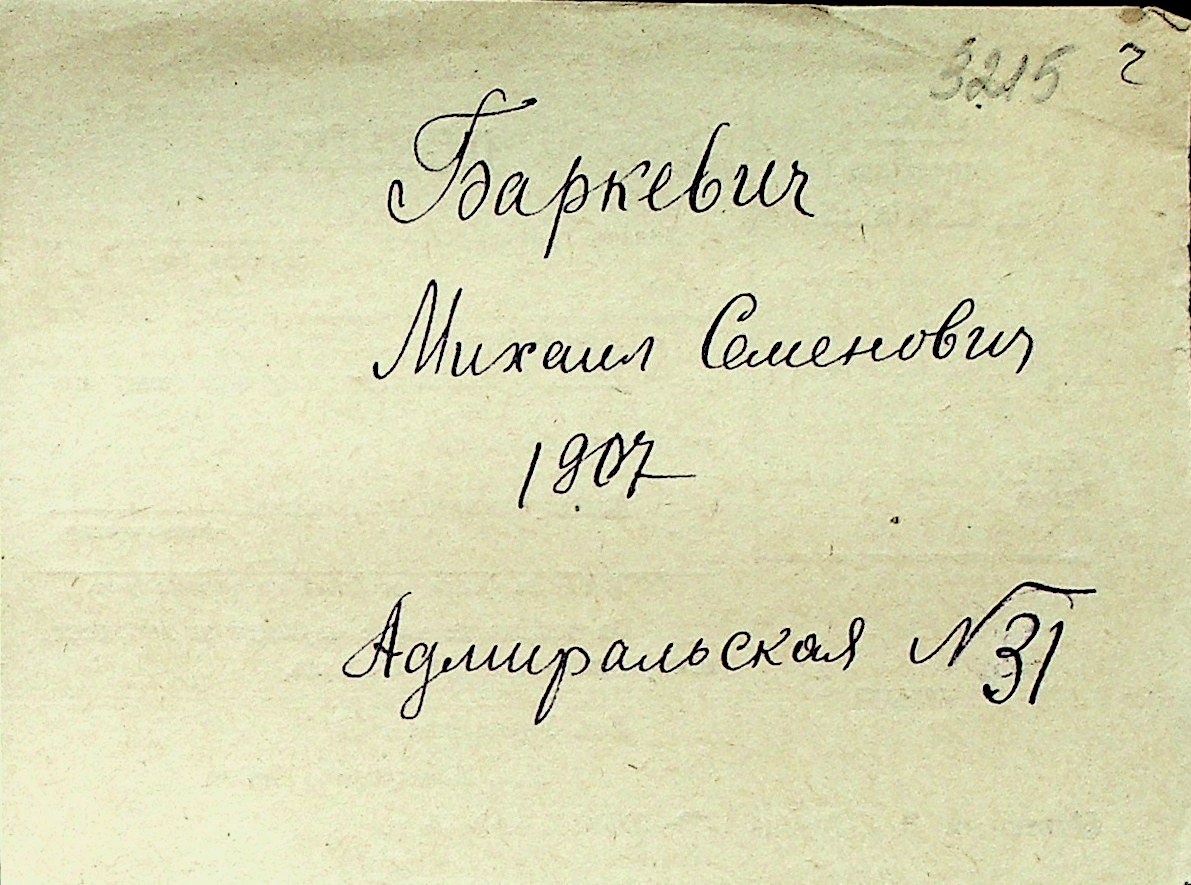 3215 2
Баркевич
Михаил Семенович
1907
Адмиральская №31